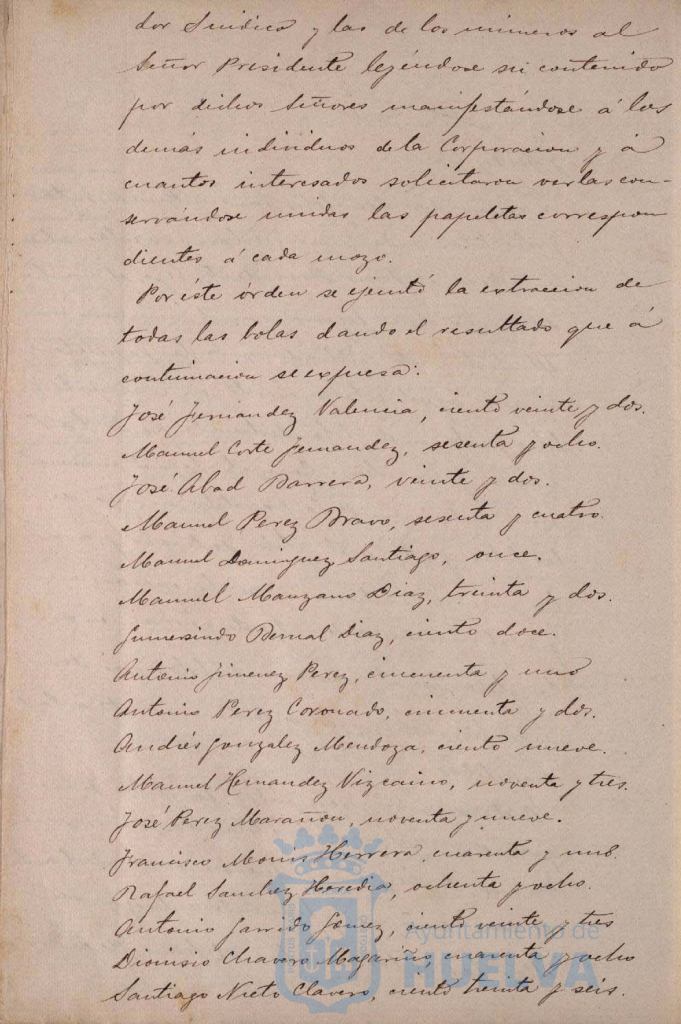 dor Sindico y las de los números al
Señor Presidente leyéndose su contenido
por dichos Señores manifestándose á los
demás individuos de la Corporacion y á
cuantos interesados solicitaron verlas con-
servándose unidas las papeletas correspon
dientes á cada mozo.
Por éste órden se ejecutó la extraccion de
todas las bolas dando el resultado que á
continuacion se expresa:
José Fernandez Valencia, ciento veinte y dos.
Manuel Corte Fernandez, sesenta y ocho.
José Abad Barrera, veinte y dos.
Manuel Perez Bravo, sesenta y cuatro.
Manuel Dominguez Santiago, once.
Manuel Manzano Diaz, treinta y dos.
Gumersindo Bernal Diaz, ciento doce.
Antonio Jimenez Perez, cincuenta y uno
Antonio Perez Coronado, cincuenta y dos.
Andrés Gonzalez Mendoza, ciento nueve.
Manuel Hernandez Vizcaino, noventa y tres.
José Perez Marañon, noventa y nueve.
Francisco Monis Herrera, cuarenta y uno.
Rafael Sanchez Heredia, ochenta y ocho.
Antonio Garrido Gomez, ciento veinte y tres
Dionisio Chavero Magariño, cuarenta y ocho
Santiago Nieto Clavero, ciento treinta y seis.
Ayuntamiento de
HUELVA